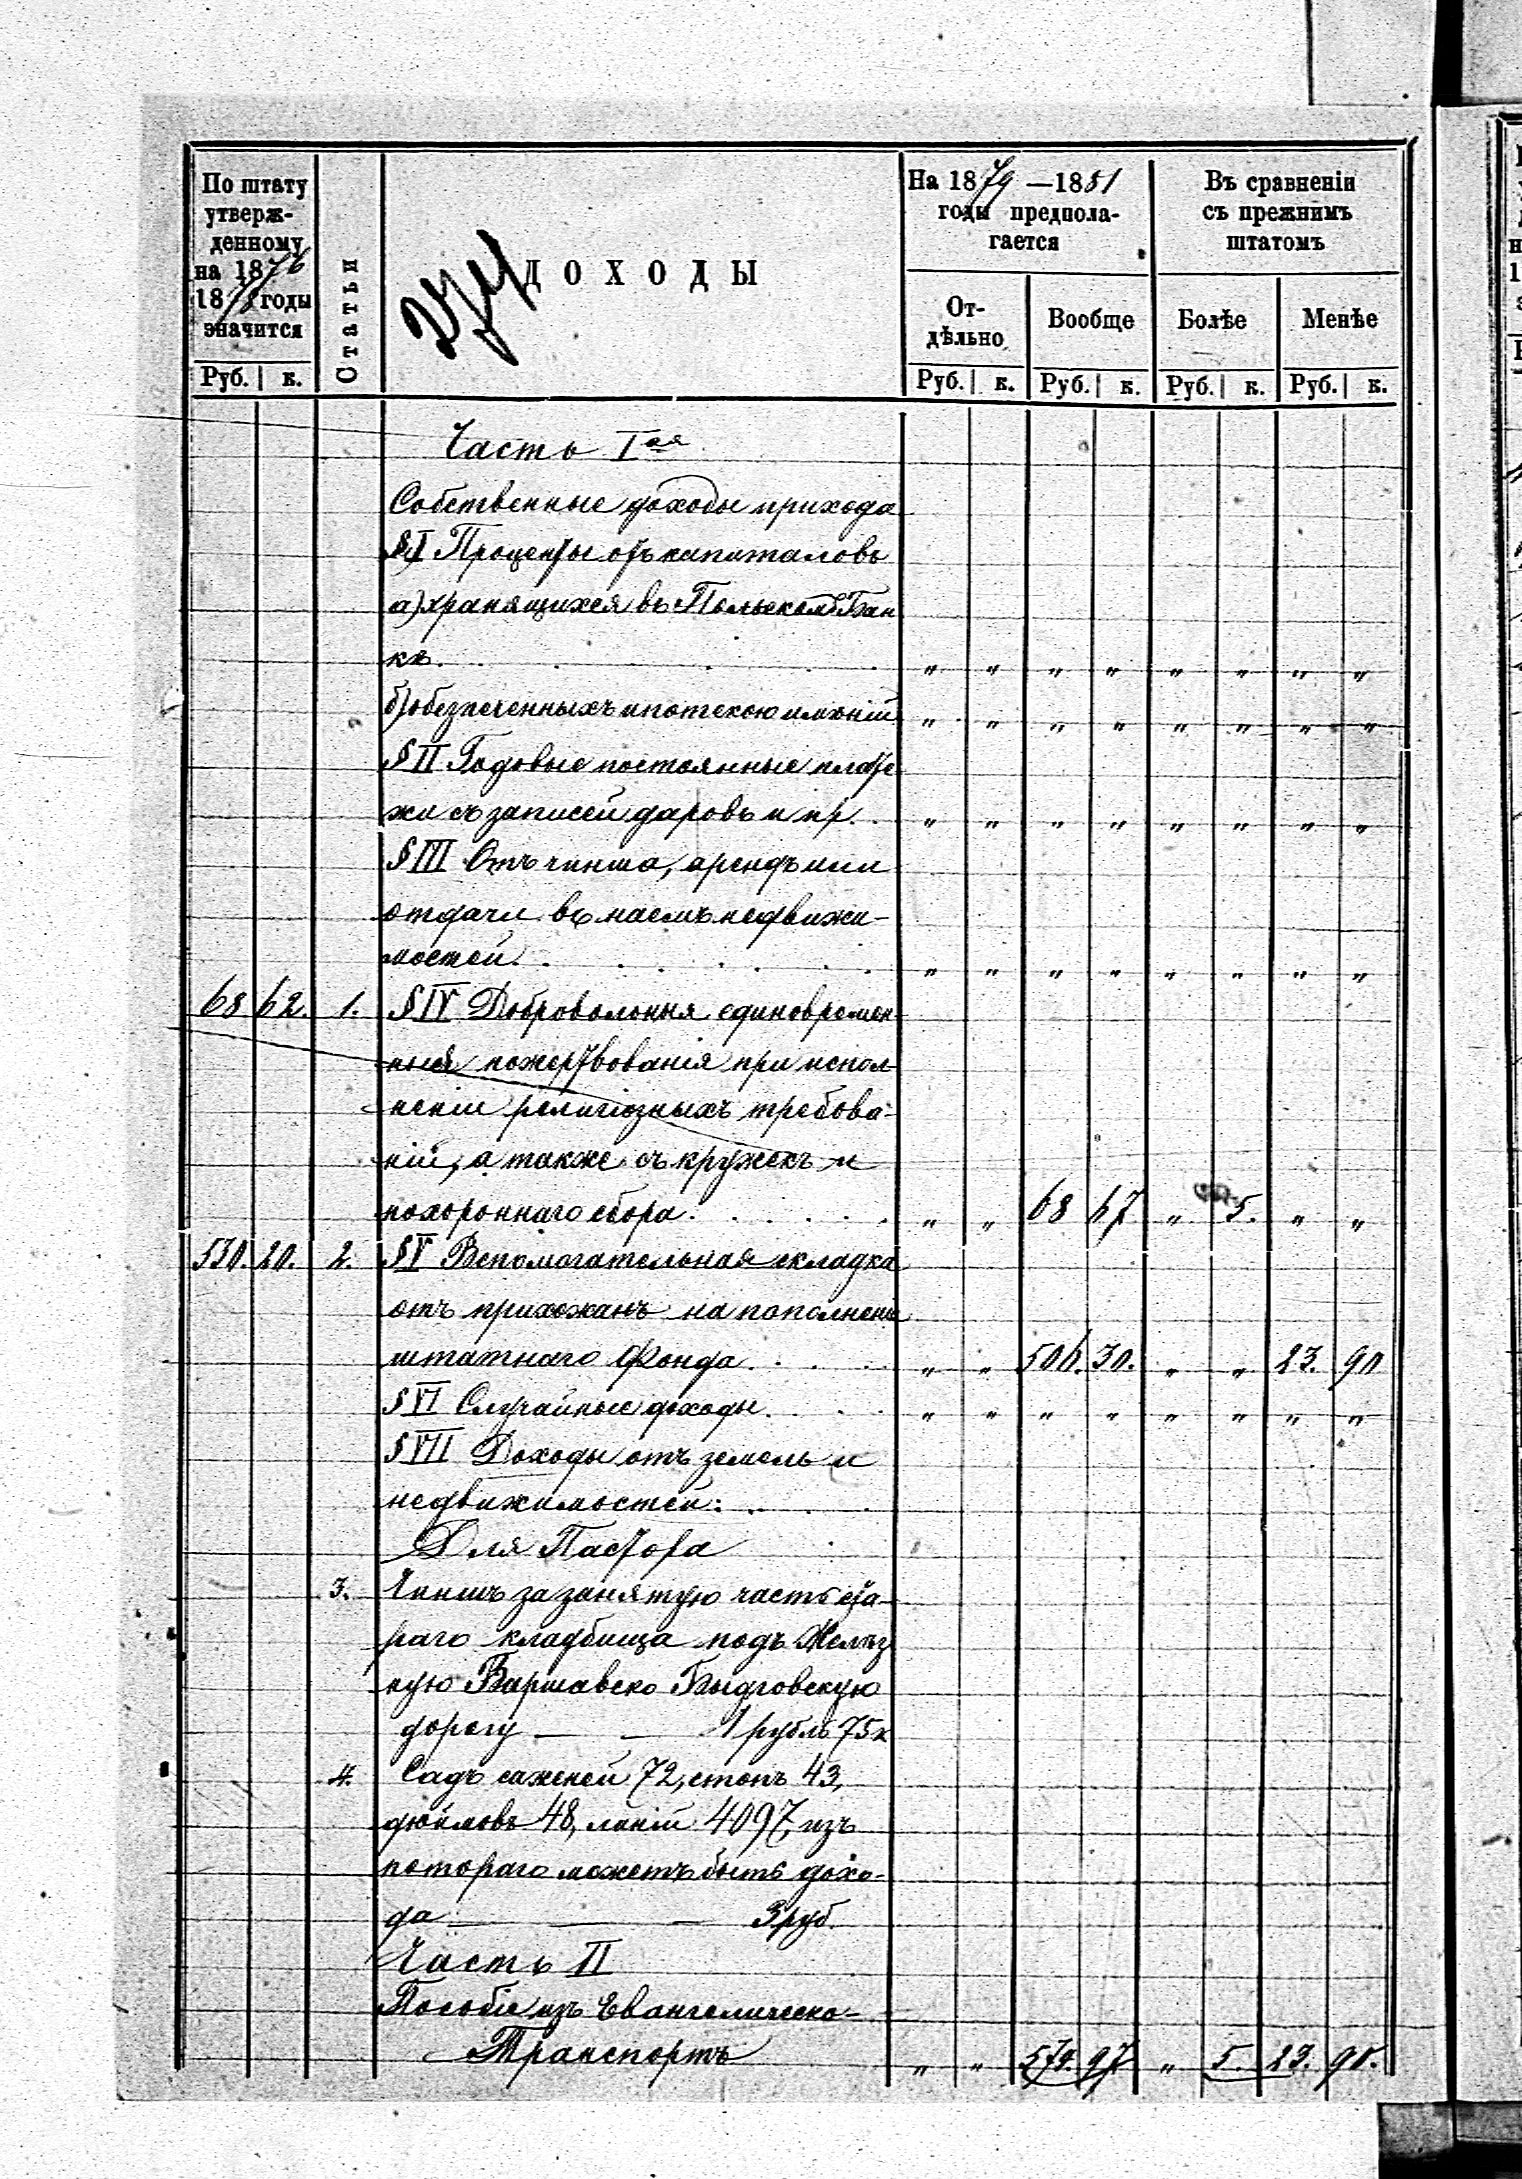 По штату утверж-денному на 1876 1878 годы значится
Статьи
274
ДОХОДЫ
На 1879 —1881 годы предпола-гается
Въ сравненіи съ прежнимъ штатомъ
От-дѣльно
Вообще
Болѣе
Менѣе
Руб. к.
Руб. к. Руб. к. Руб. к. Руб. к.
Часть Iая
Собственные доходы прихода
§I Проценты отъ капиталовъ
а) хранящихся въ Польскомъ Бан
кѣ. . . . . „ „ „ „ „ „ „ „
б) обезпеченныхъ ипотекою имѣній „ „ „ „ „ „ „ „
§II Годовые постоянные плате
жи съ записей даровъ и пр. . „ „ „ „ „ „ „ „
§III Отъ чинша, арендъ или
отдачи въ наемъ недвижи-
мостей. . . . . . . „ „ „ „ „ „ „ „
68 62. 1. §IV Добровольныя единовремен-
ныя пожертвованія при испол
неніи религіозныхъ требова-
ній, а также съ кружекъ и
похороннаго сбора. . . . . . „ „ 68 67 „ 5. „ „
530. 20. 2. §V Вспомогательная складка
отъ прихожанъ на пополненіе
штатнаго Фонда. . . . „ „ 506. 30. „ „ 23. 90
§VI Случайные доходы. . . . „ „ „ „ „ „ „ „
§VII Доходы отъ земель и
недвижимостей: . . .
Для Пастора
3. Чиншъ за занятую часть ста-
раго кладбища подъ Желѣз
ную Варшавско Быдговскую
дорогу — — 1 рубль 75 к
4. Садъ саженей 72, стопъ 43,
дюймовъ 48, линій 4097, изъ
котораго можетъ быть дохо-
да — — — 3 руб.
Часть II
Пособіе изъ Евангелическо-
Транспортъ „ „ 574. 97 „ 5. 23. 90.